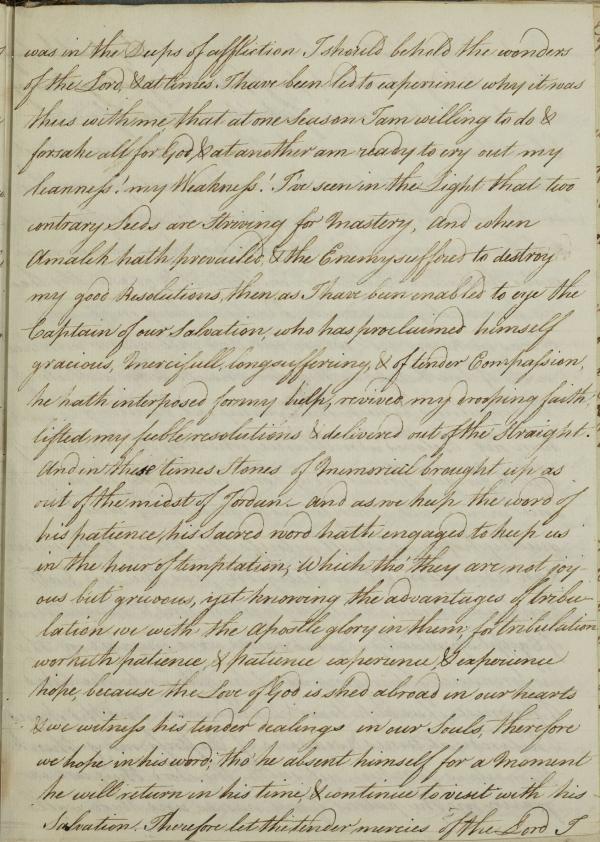 was in the Deeps of affliction I should behold the wonders
of the Lord, & at times I have been led to experience why it was
thus with me, that at one Season I am willing to do &
forsake all for God, & at another am ready to cry out my
leanness! my Weakness! I've seen in the Light that two
contrary Seeds are Striving for Mastery, And when
Amalek hath prevailed, & the Enemy suffered to destroy
my good Resolutions, then as I have been enabled to eye the
Captain of our Salvation, who has proclaimed himself
gracious, Mercifull, longsuffering, & of tender Compassion,
he hath interposed for my help, revived my drooping faith
lifted my feble resolutions & delivered out of the Straight.
And in these times Stones of Memorial brought up as
out of the midst of Jordan - and as we keep the word of
his patience, his Sacred word hath engaged to keep us
in the hour of temptation, Which tho' they are not joy-
ous but grieveous, yet knowing the advantages of tribu-
lation we with the Apostle glory in them, for tribulation
worketh patience, & patience experience, & experience
hope, because the Love of God is shed abroad in our hearts
& we witness his tender dealings in our Souls, therefore
we hope in his word; tho' he absent himself for a Moment
he will return in his time, & continue to visit with his
Salvation. Therefore let the tender mercies of the Lord I